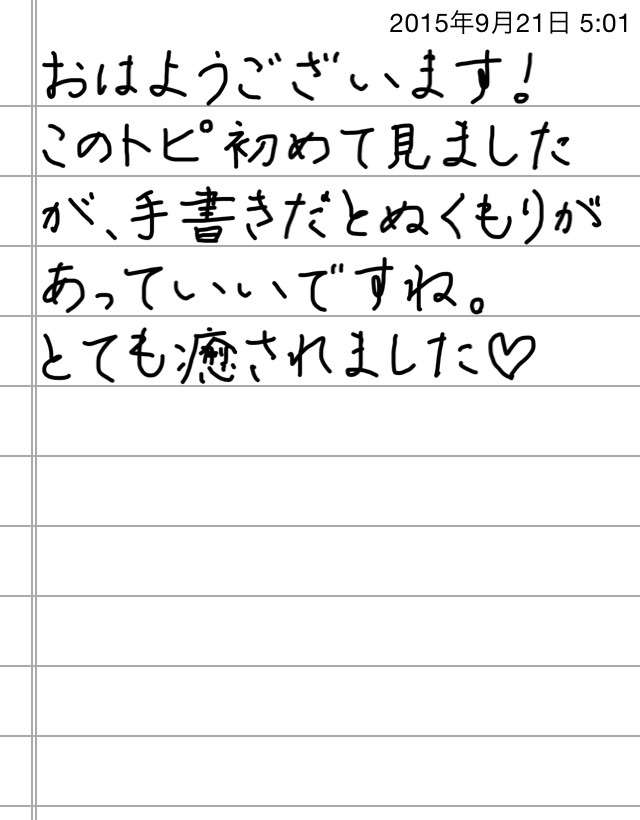 2015年9月21日 5:01
おはようございます!
このトピ初めて見ました
が、手書きだとぬくもりが
あっていいですね。
とても癒されました♡